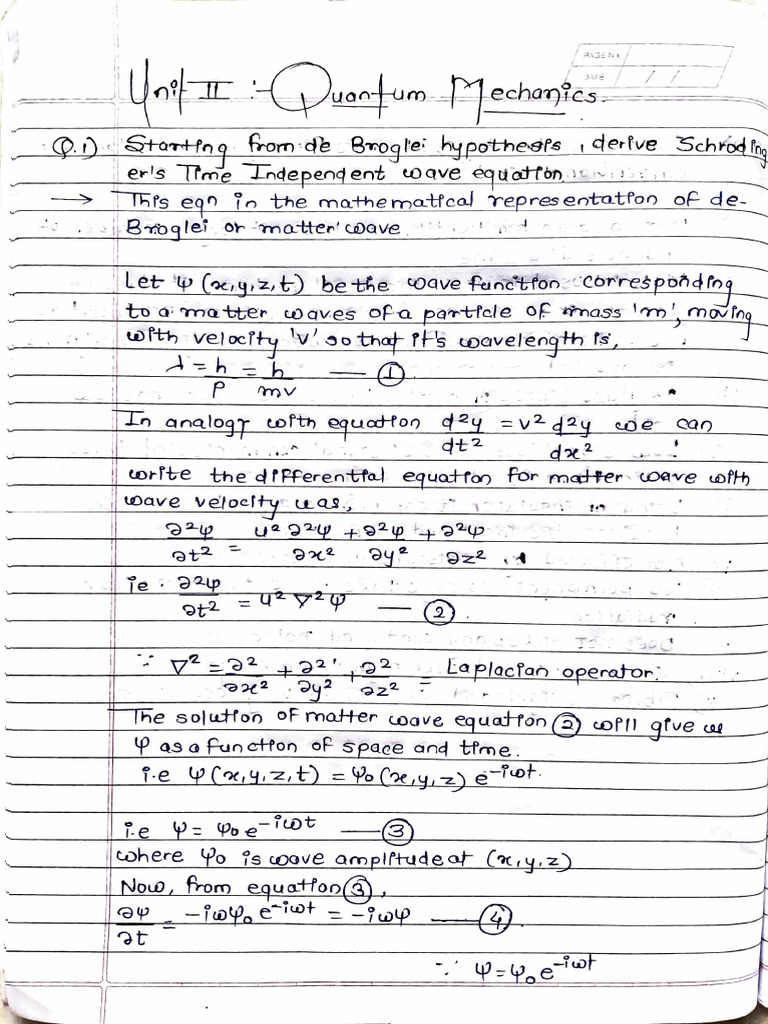 PAGE No.
DATE / /
Unit II :- Quantum Mechanics.
Q.1) Starting from de Broglei hypothesis, derive Schroding
er's Time Independent wave equation.
→ This eqn in the mathematical representation of de-
Broglei or matter wave
Let ψ (x,y,z,t) be the wave function corresponding
to a matter waves of a particle of mass 'm', moving
with velocity 'v' so that it's wavelength is,
λ = h/p = h/mv — ①
In analogy with equation d²y/dt² = v² d²y/dx² we can
write the differential equation for matter wave with
wave velocity u as,
∂²ψ/∂t² = u² ∂²ψ/∂x² + ∂²ψ/∂y² + ∂²ψ/∂z²
ie. ∂²ψ/∂t² = u² ∇² ψ — ②
∵ ∇² = ∂²/∂x² + ∂²/∂y² + ∂²/∂z² = Laplacian operator.
The solution of matter wave equation ② will give us
ψ as a function of space and time.
i.e ψ(x,y,z,t) = ψ₀ (x,y,z) e^-iωt.
i.e ψ = ψ₀ e^-iωt — ③
where ψ₀ is wave amplitude at (x,y,z)
Now, from equation ③,
∂ψ/∂t = -iωψ₀ e^-iωt = -iωψ — ④
∵ ψ = ψ₀ e^-iωt